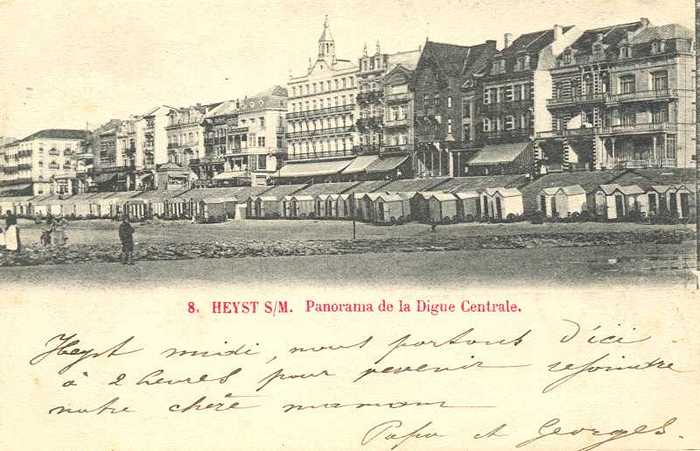 8. HEYST S/M. Panorama de la Digue Centrale.
Heyst midi, nous partons d'ici
à 2 heures pour revenir rejoindre
notre chère maman
Papa et Georges.